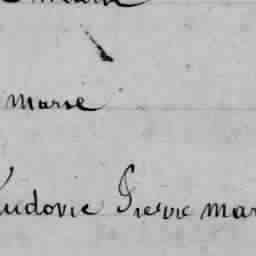 Marie
Ludovic Pierre Mar